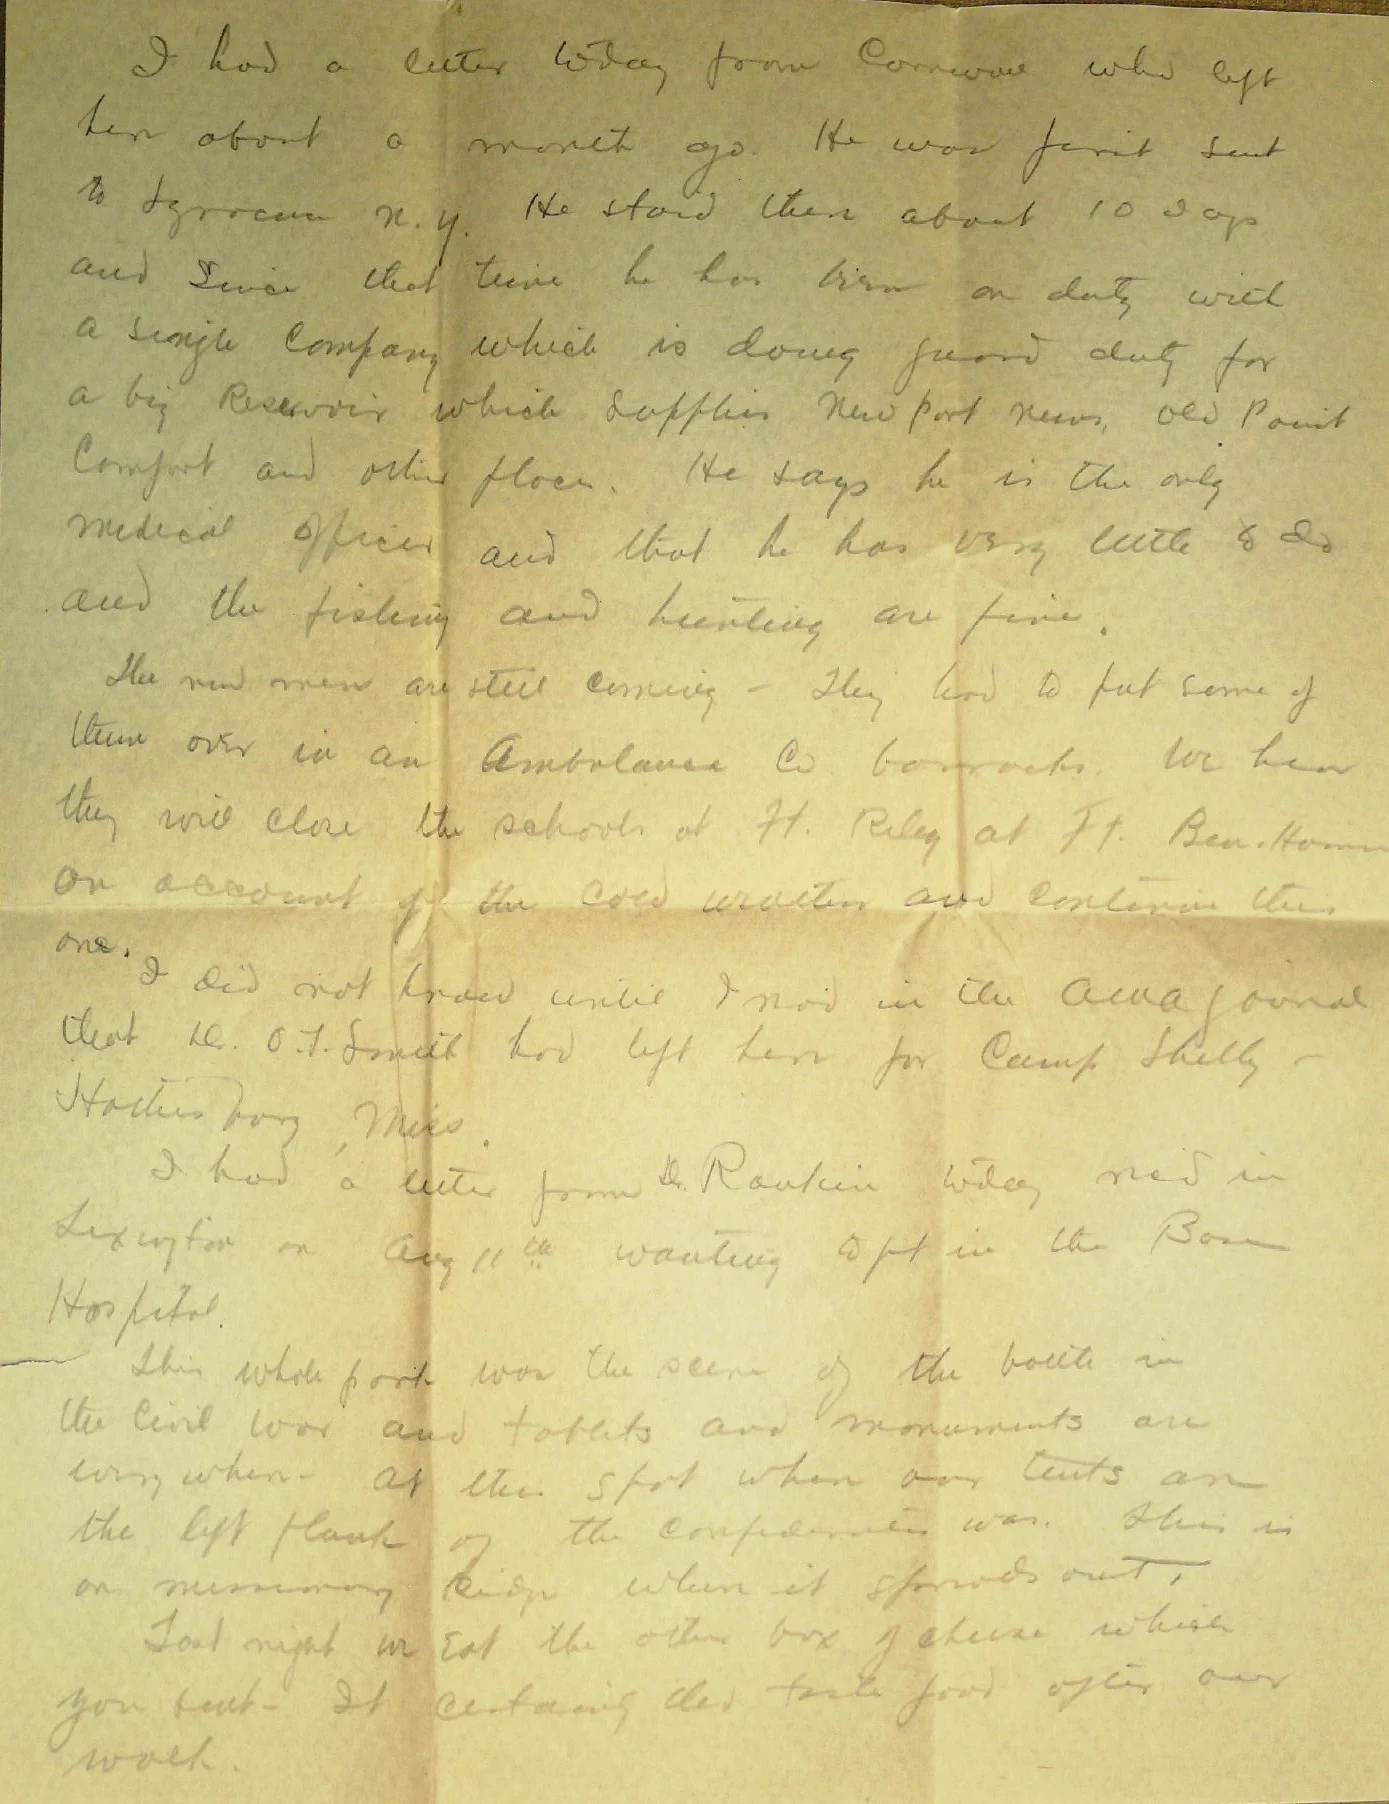 I had a letter today from Cornwall who left
here about a month ago. He was first sent
to Syracuse N.Y. He staid there about 10 days
and since that time he has been on duty with
a single Company which is doing guard duty for
a big Reservoir which supplies New Port News, Old Point
Comfort and other places. He says he is the only
medical officer and that he has very little to do
and the fishing and hunting are fine.
The new men are still coming - They had to put some of
them over in an Ambulance Co barracks. We hear
they will close the schools at Ft. Riley at Ft. Ben. Harrison
on account of the cold weather and continue this
one.
I did not know until I read in the AMA Journal
that Dr. O.T. Smith had left here for Camp Shelby -
Hattiesburg, Miss.
I had a letter from Dr. Rankin today in
Lexington on Aug 11th wanting to get in the Base
Hospital.
This whole park was the scene of the battle in
the Civil War and tablets and monuments are
every where - At this spot where our tents are
the left flank of the confederates was. This is
on missionary Ridge where it spreads out.
Last night we eat the other box of cheese which
you sent - It certainly did taste good after our
walk.